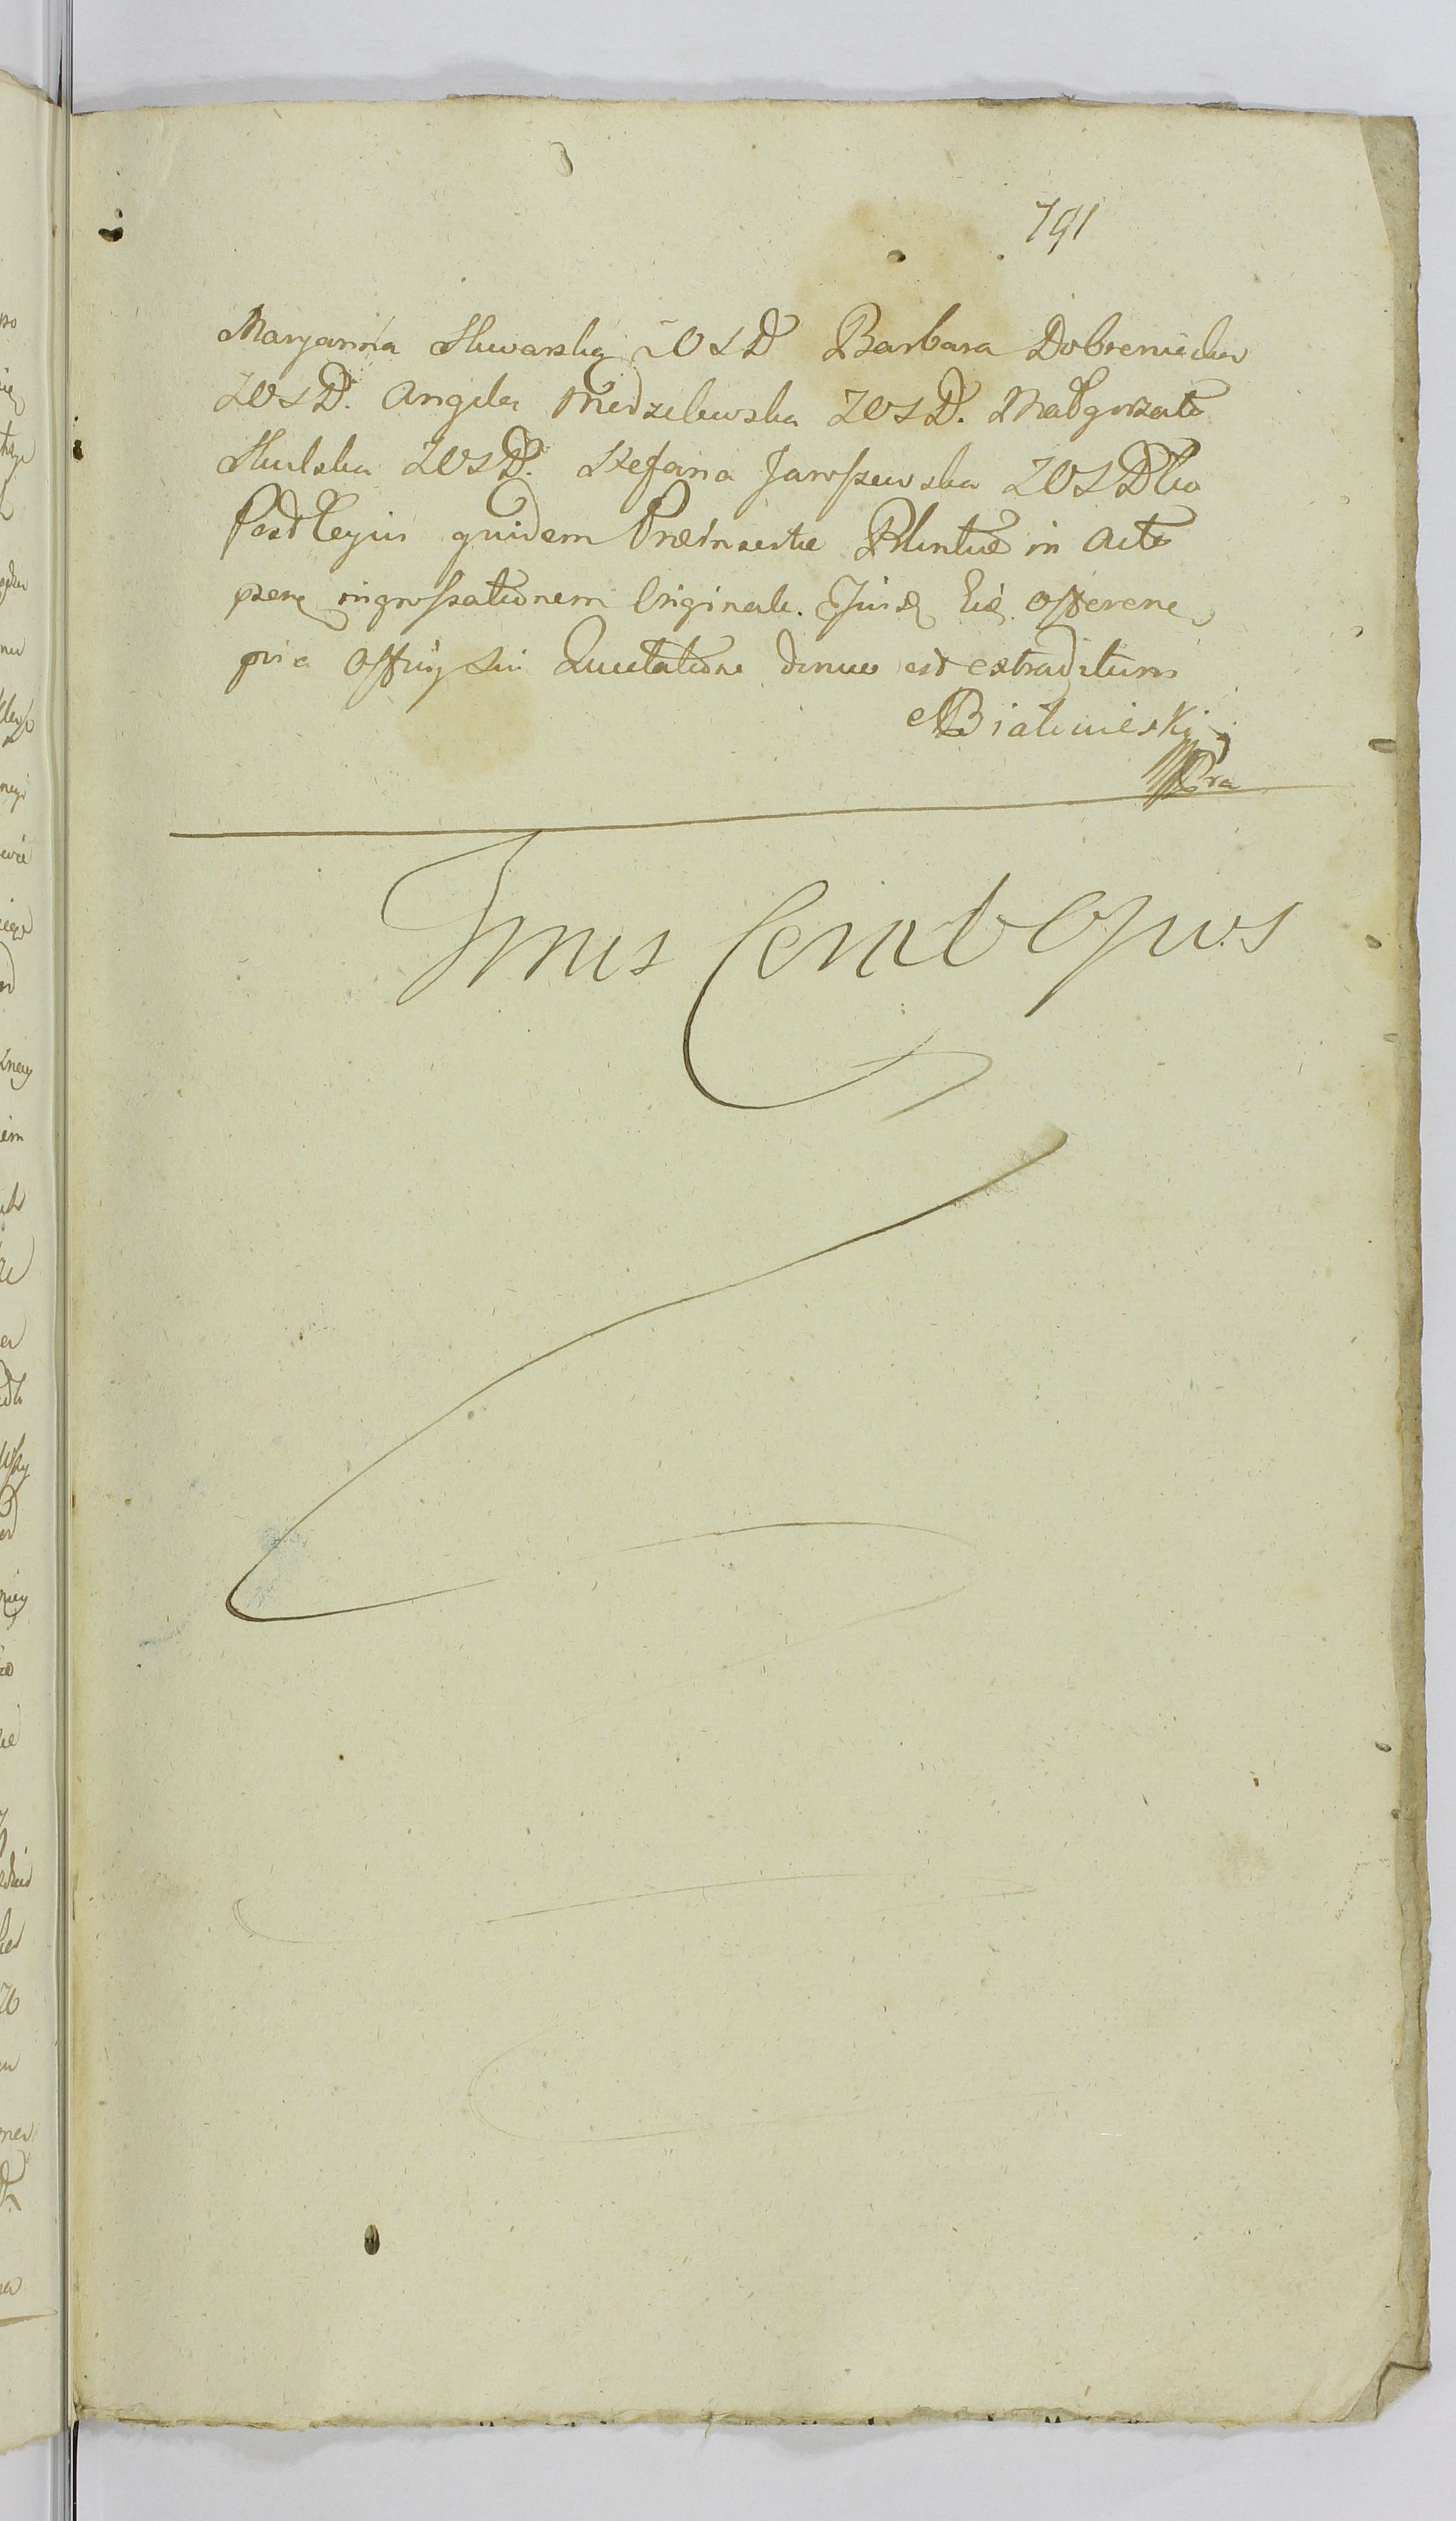 791
Maryanna Skwarska ZOSD Barbara Dobreniecka
ZOSD. Angela Niedzelewska ZOSD. Małgorzata
Skulska ZOSD. Stefana Jaroszewska ZOSD
post Cujus quidem in Acta
ingrossationem Originale. Ejusq Eid Offerene
pnie Offcij sui Quietatione denuo est extraditum
Białowieski
Finis Coronat Opus